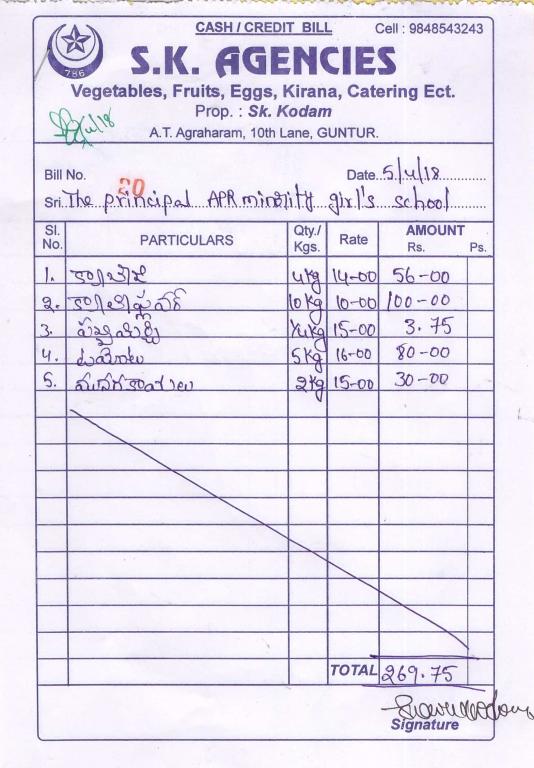 CASH / CREDIT BILL Cell : 9848543243
786
S.K. AGENCIES
Vegetables, Fruits, Eggs, Kirana, Catering Ect.
Prop. : Sk. Kodam
A.T. Agraharam, 10th Lane, GUNTUR.
Bill No. 20 Date 5/4/18
Sri The principal APR minority girl's school
Sl. No. PARTICULARS Qty./ Kgs. Rate AMOUNT Rs. Ps.
1. క్యాబేజి 4kg 14-00 56-00
2. క్యాలీఫ్లవర్ 10kg 10-00 100-00
3. పచ్చిమిర్చి 1/4kg 15-00 3.75
4. టమోటలు 5kg 16-00 80-00
5. 2kg 15-00 30-00
TOTAL 269.75
Signature